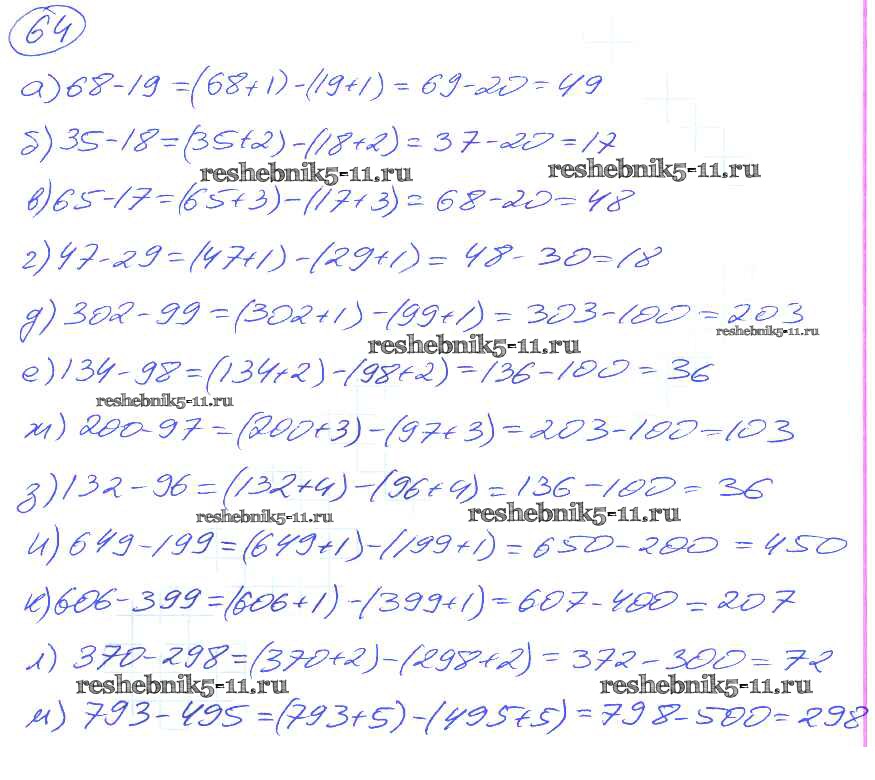 64
а) 68-19=(68+1)-(19+1)=69-20=49
б) 35-18=(35+2)-(18+2)=37-20=17
reshebnik5-11.ru reshebnik5-11.ru
в) 65-17=(65+3)-(17+3)=68-20=48
г) 47-29=(47+1)-(29+1)=48-30=18
д) 302-99=(302+1)-(99+1)=303-100=203
reshebnik5-11.ru reshebnik5-11.ru
е) 134-98=(134+2)-(98+2)=136-100=36
reshebnik5-11.ru
ж) 200-97=(200+3)-(97+3)=203-100=103
з) 132-96=(132+4)-(96+4)=136-100=36
reshebnik5-11.ru reshebnik5-11.ru
и) 649-199=(649+1)-(199+1)=650-200=450
к) 606-399=(606+1)-(399+1)=607-400=207
л) 370-298=(370+2)-(298+2)=372-300=72
reshebnik5-11.ru reshebnik5-11.ru
м) 793-495=(793+5)-(495+5)=798-500=298